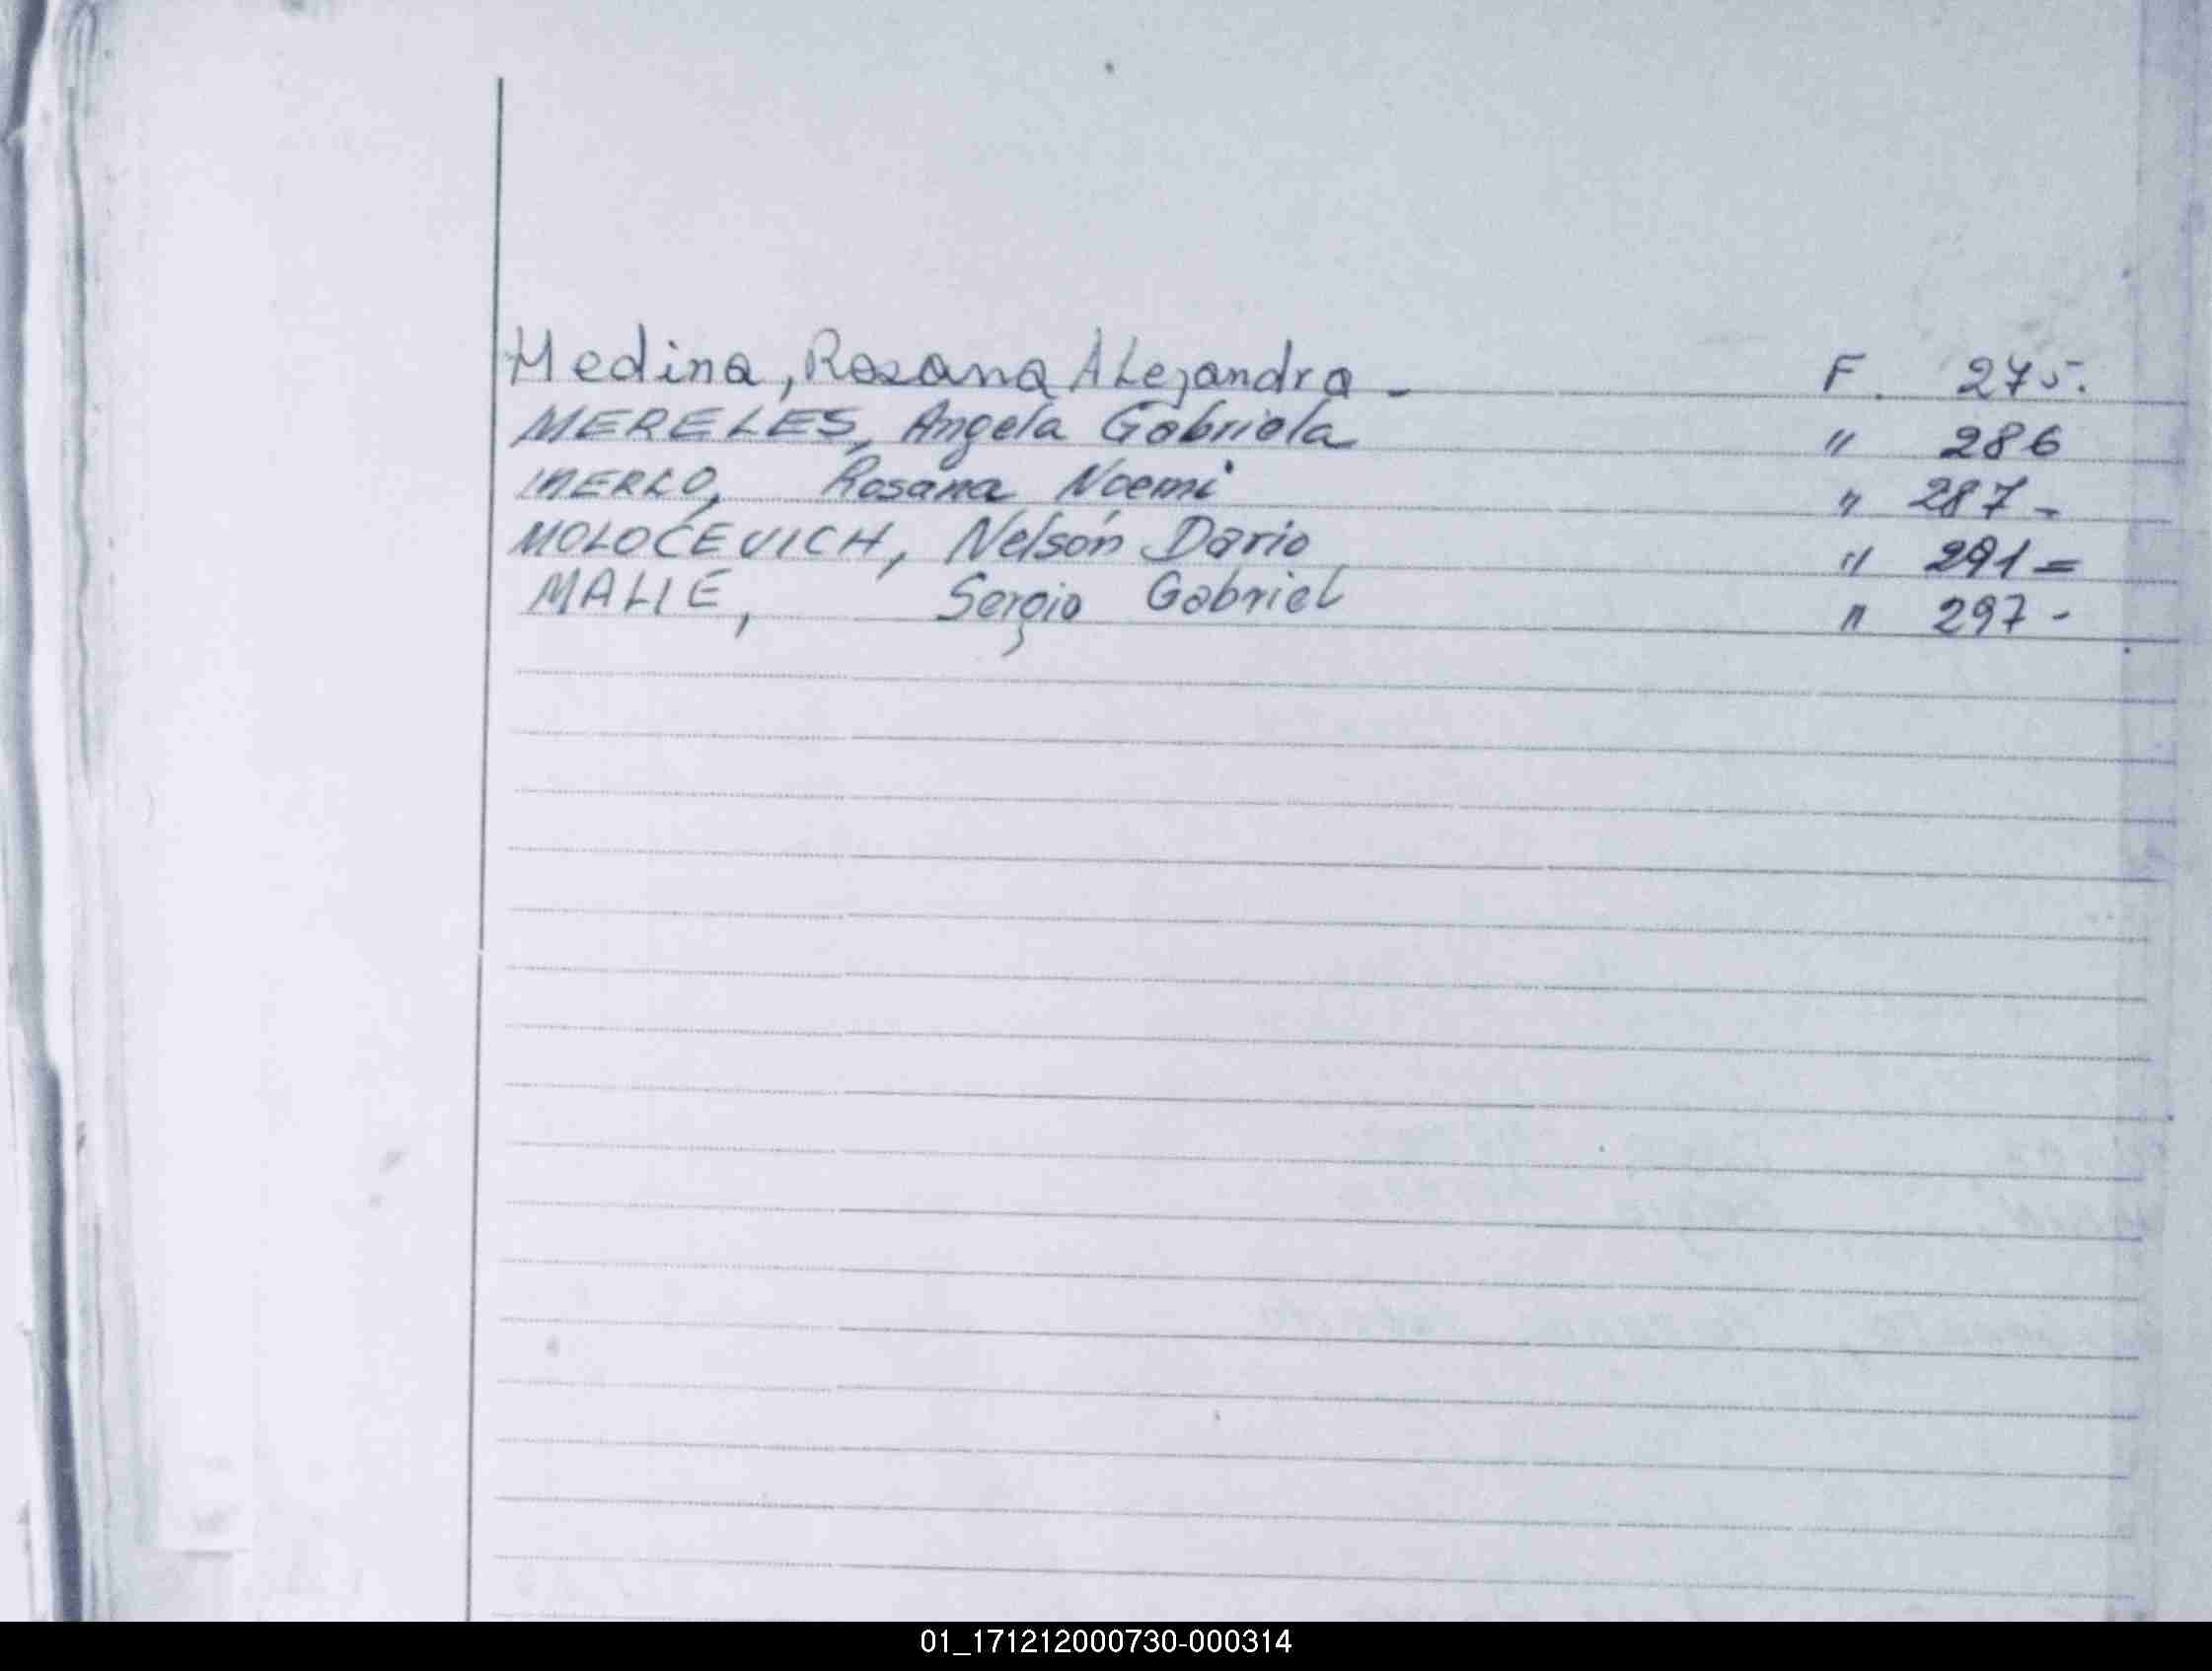 Medina, Rosana Alejandra - F. 275.
MERELES, Angela Gabriela " 286
MERLO, Rosana Noemi " 287 -
MOLOCEVICH, Nelsón Dario " 291 =
MALIE, Sergio Gabriel " 297 -
01_171212000730-000314